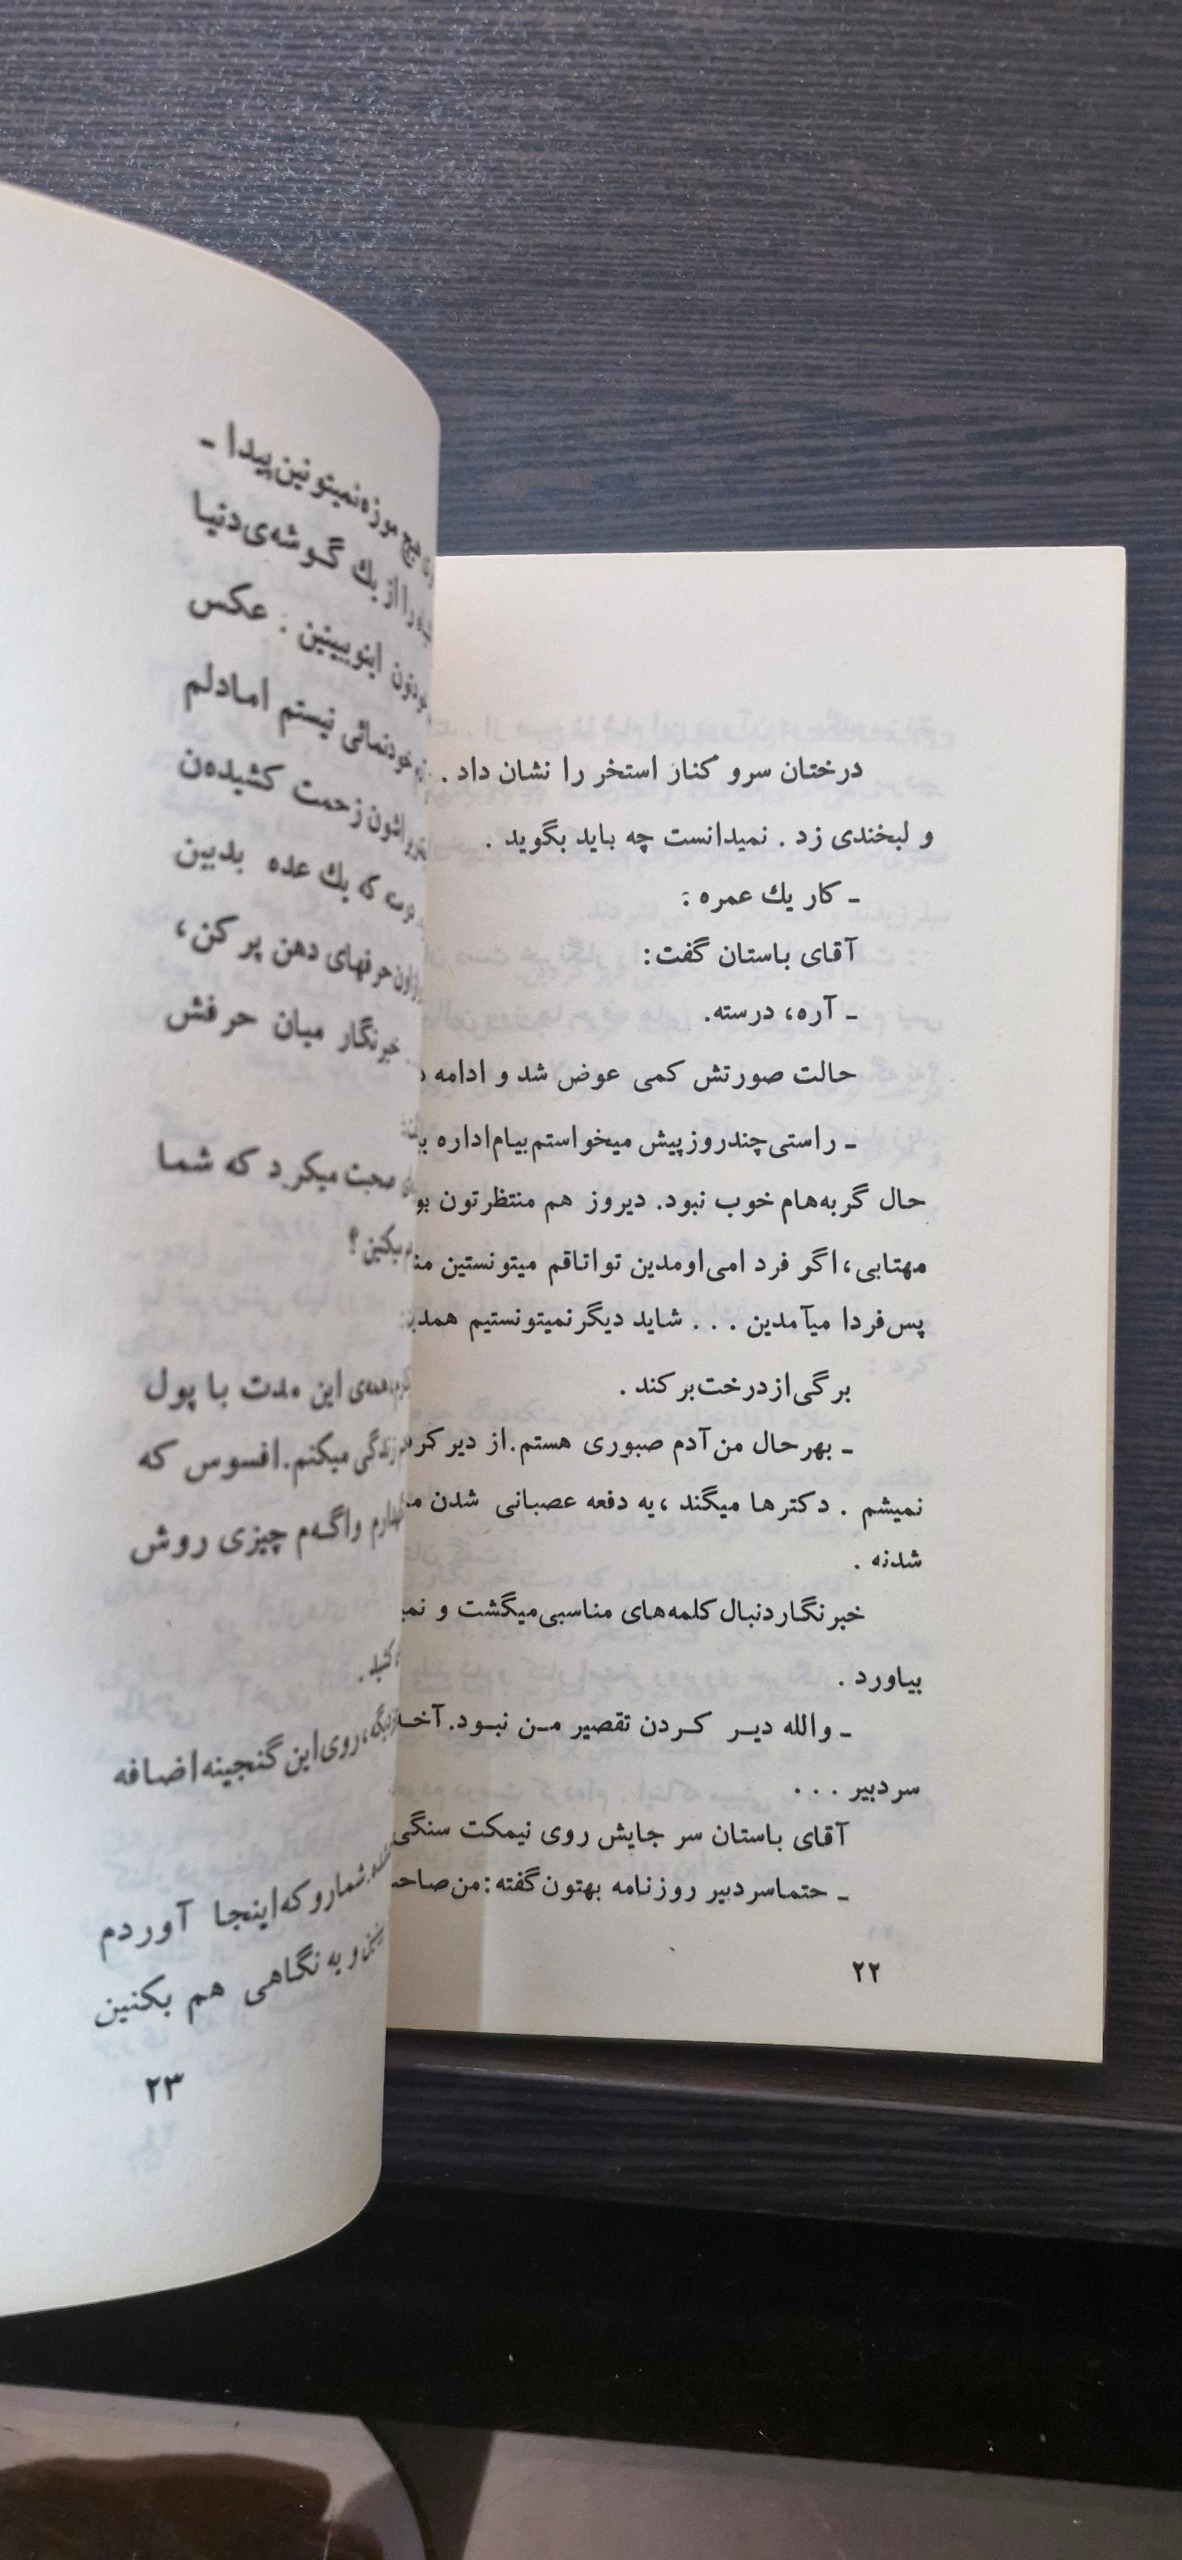 درختان سرو کنار استخر را نشان داد .
و لبخندی زد . نمیدانست چه باید بگوید .
ـ کار یك عمره :
آقای باستان گفت:
ـ آره، درسته.
حالت صورتش کمی عوض شد و ادامه
ـ راستی چندروزپیش میخواستم بیام اداره
حال گربه‌هام خوب نبود. دیروز هم منتظرتون
مهتابی، اگر فردا می‌اومدین تو اتاقم میتونستین
پس‌فردا میآمدین . . . شاید دیگر نمیتونستیم
برگی از درخت برکند .
ـ بهرحال من آدم صبوری هستم. از دیر
نمیشم . دکترها میگند ، یه دفعه عصبانی شدن
شدنه .
خبرنگار دنبال کلمه‌های مناسبی میگشت و
بیاورد .
ـ والله دیر کردن تقصیر من نبود.
سردبیر . . .
آقای باستان سر جایش روی نیمکت سنگی
ـ حتما سردبیر روزنامه بهتون گفته: من
۲۲
موزه نمیتونین پیدا ـ
را از یك گوشه‌ی دنیا
اینو ببینین . عکس
خودنمائی نیستم اما دلم
زحمت کشیده‌ن
که یك عده بدبین
حرفهای دهن پر کن،
خبرنگار میان حرفش
صحبت میکرد که شما
همه‌ی این مدت با پول
زندگی میکنم. افسوس که
واگه‌م چیزی روش
روی این گنجینه اضافه
شما رو که اینجا آوردم
و یه نگاهی هم بکنین
۲۳